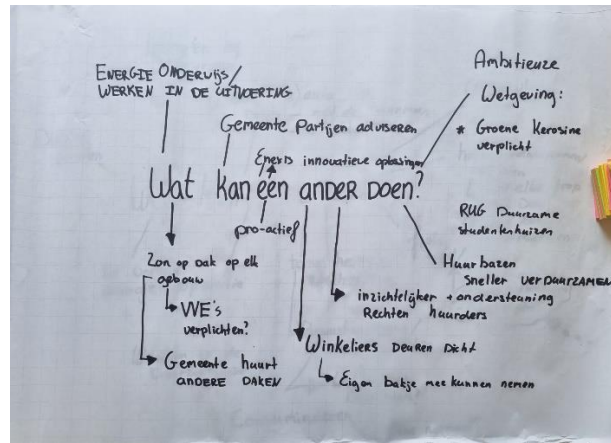 ENERGIE ONDERWIJS/
WERKEN IN DE UITVOERING
Ambitieuze
Wetgeving:
* Groene Kerosine
verplicht
Gemeente Partijen adviseren
Enexis innovatieve oplossingen
Wat kan een ander doen?
pro-actief
RUG Duurzame
studentenhuizen
Huurbazen
Sneller verduurzamen
Zon op dak op elk
gebouw
WE's
verplichten?
Gemeente huurt
ANDERE DAKEN
inzichtelijker + ondersteuning
Rechten huurders
Winkeliers Deuren Dicht
Eigen bakje mee kunnen nemen